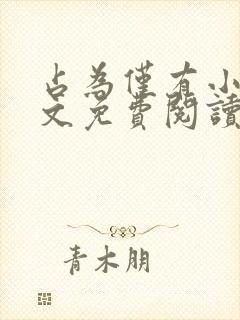 占為僅有小
文免費閱讀
青木朋